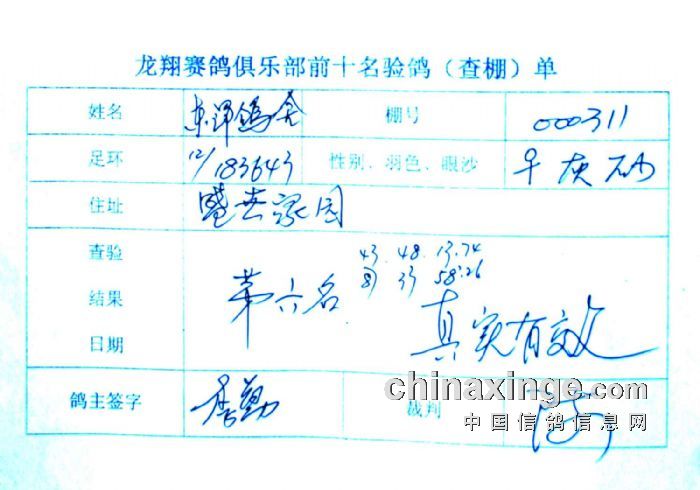 龙翔赛鸽俱乐部前十名验鸽（查棚）单
姓名 东洋鸽舍 棚号 000311
足环 12/183643 性别、羽色、眼沙 平 灰 砂
住址 盛世家园
查验 43. 48. 13.74
33 58.26
结果 第六名
日期 真实有效
鸽主签字 裁判
chinaxinge.com
中国信鸽信息网